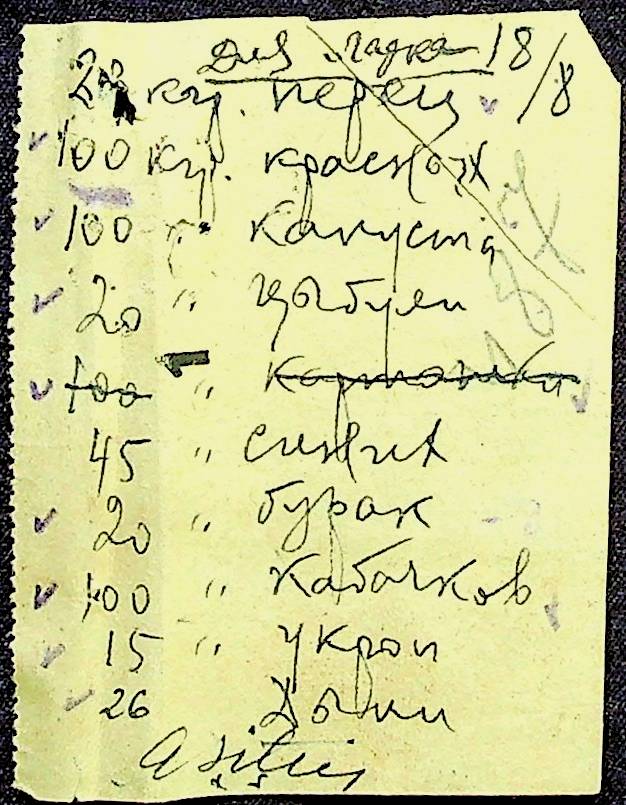 Для 18/8
кг. перец
100 кг. красных
100 " капуста
20 " цыбули
100 " картошки
45 " синих
20 " бурак
100 " кабачков
15 " укроп
26 Дыни